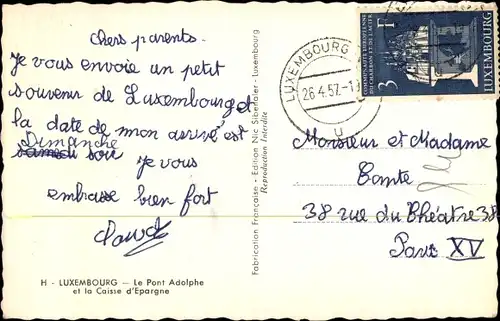 chers parents.
Je vous envoie un petit
souvenir de Luxembourg et
la date de mon arrivé est
Dimanche
samedi soir je vous
embrasse bien fort
H - LUXEMBOURG — Le Pont Adolphe
et la Caisse d'Epargne
Fabrication Française - Edition Nic Sibenaler - Luxembourg
Reproduction interdite
LUXEMBOURG
26.4.57-1
3F
COMMUNAUTE EUROPEENNE
DU CHARBON ET DE L'ACIER
LUXEMBOURG
Monsieur et Madame
Conte
38 rue du Théatre 38
Paris XV